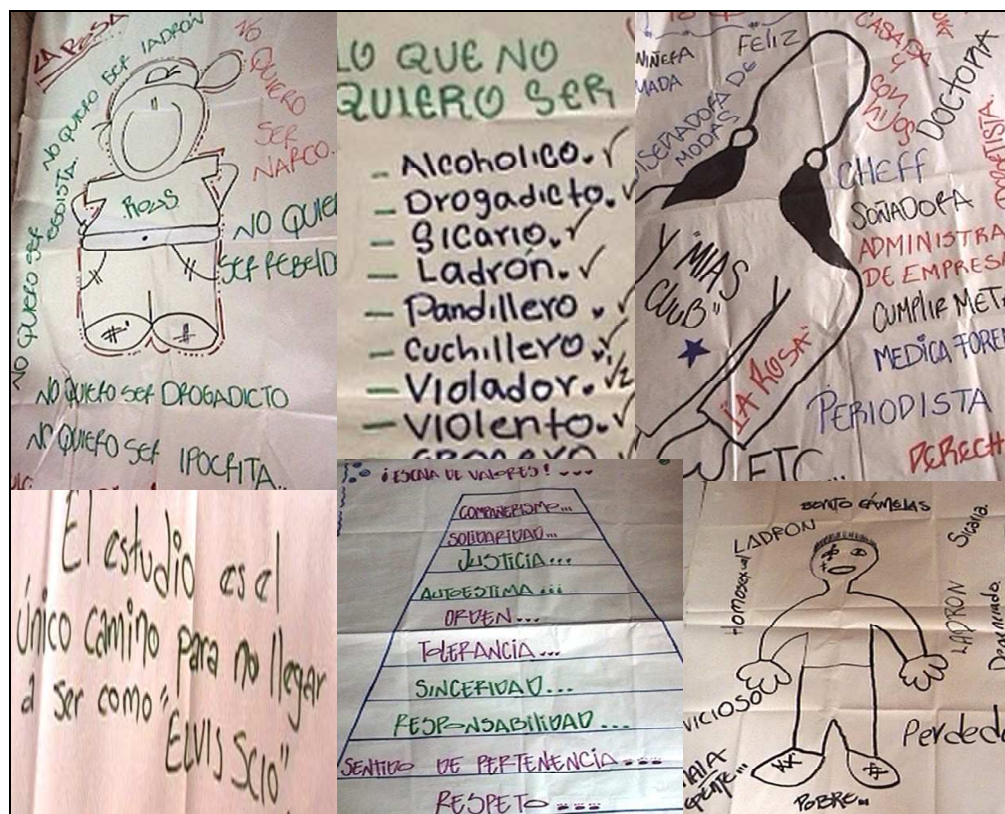 LA ROSA
NO QUIERO SER LADRÓN
NO
QUIERO
SER
NARCO..
NO QUIERO SER
EGOISTA.
ROZAS
NO QUIE
SER REBELD
NO QUIERO SER DROGADICTO
NO QUIERO SER IPOCRITA..
LO QUE NO
QUIERO SER
- Alcoholico. ✓
- Drogadicto. ✓
- Sicario. ✓
- Ladrón. ✓
- Pandillero. ✓
- Cuchillero. ✓
- Violador. ✓
- Violento. ✓
NIÑERA
MADA
FELIZ
CASADA
CON
HIJOS
DOCTORA
DISEÑADORA DE
MODAS
CHEFF
SOÑADORA
ADMINISTRA
DE EMPRESA
CUMPLIR META
MEDICA FOREN
PERIODISTA
DERECH
ETC...
"MIAS
CLUB"
LA ROSA
El estudio es el
único camino para no llegar
a ser como "
ELVIS SCIO"
¡ESCALA DE VALORES! ...
COMPAÑERISMO...
SOLIDARIDAD...
JUSTICIA...
AUTOESTIMA...
ORDEN...
TOLERANCIA...
SINCERIDAD...
RESPONSABILIDAD...
SENTIDO DE PERTENENCIA...
RESPETO...
LADRON
Sicario
Homosexual
LADRON
VICIOSO
Perdedo
MALA
GENTE...
POBRE...